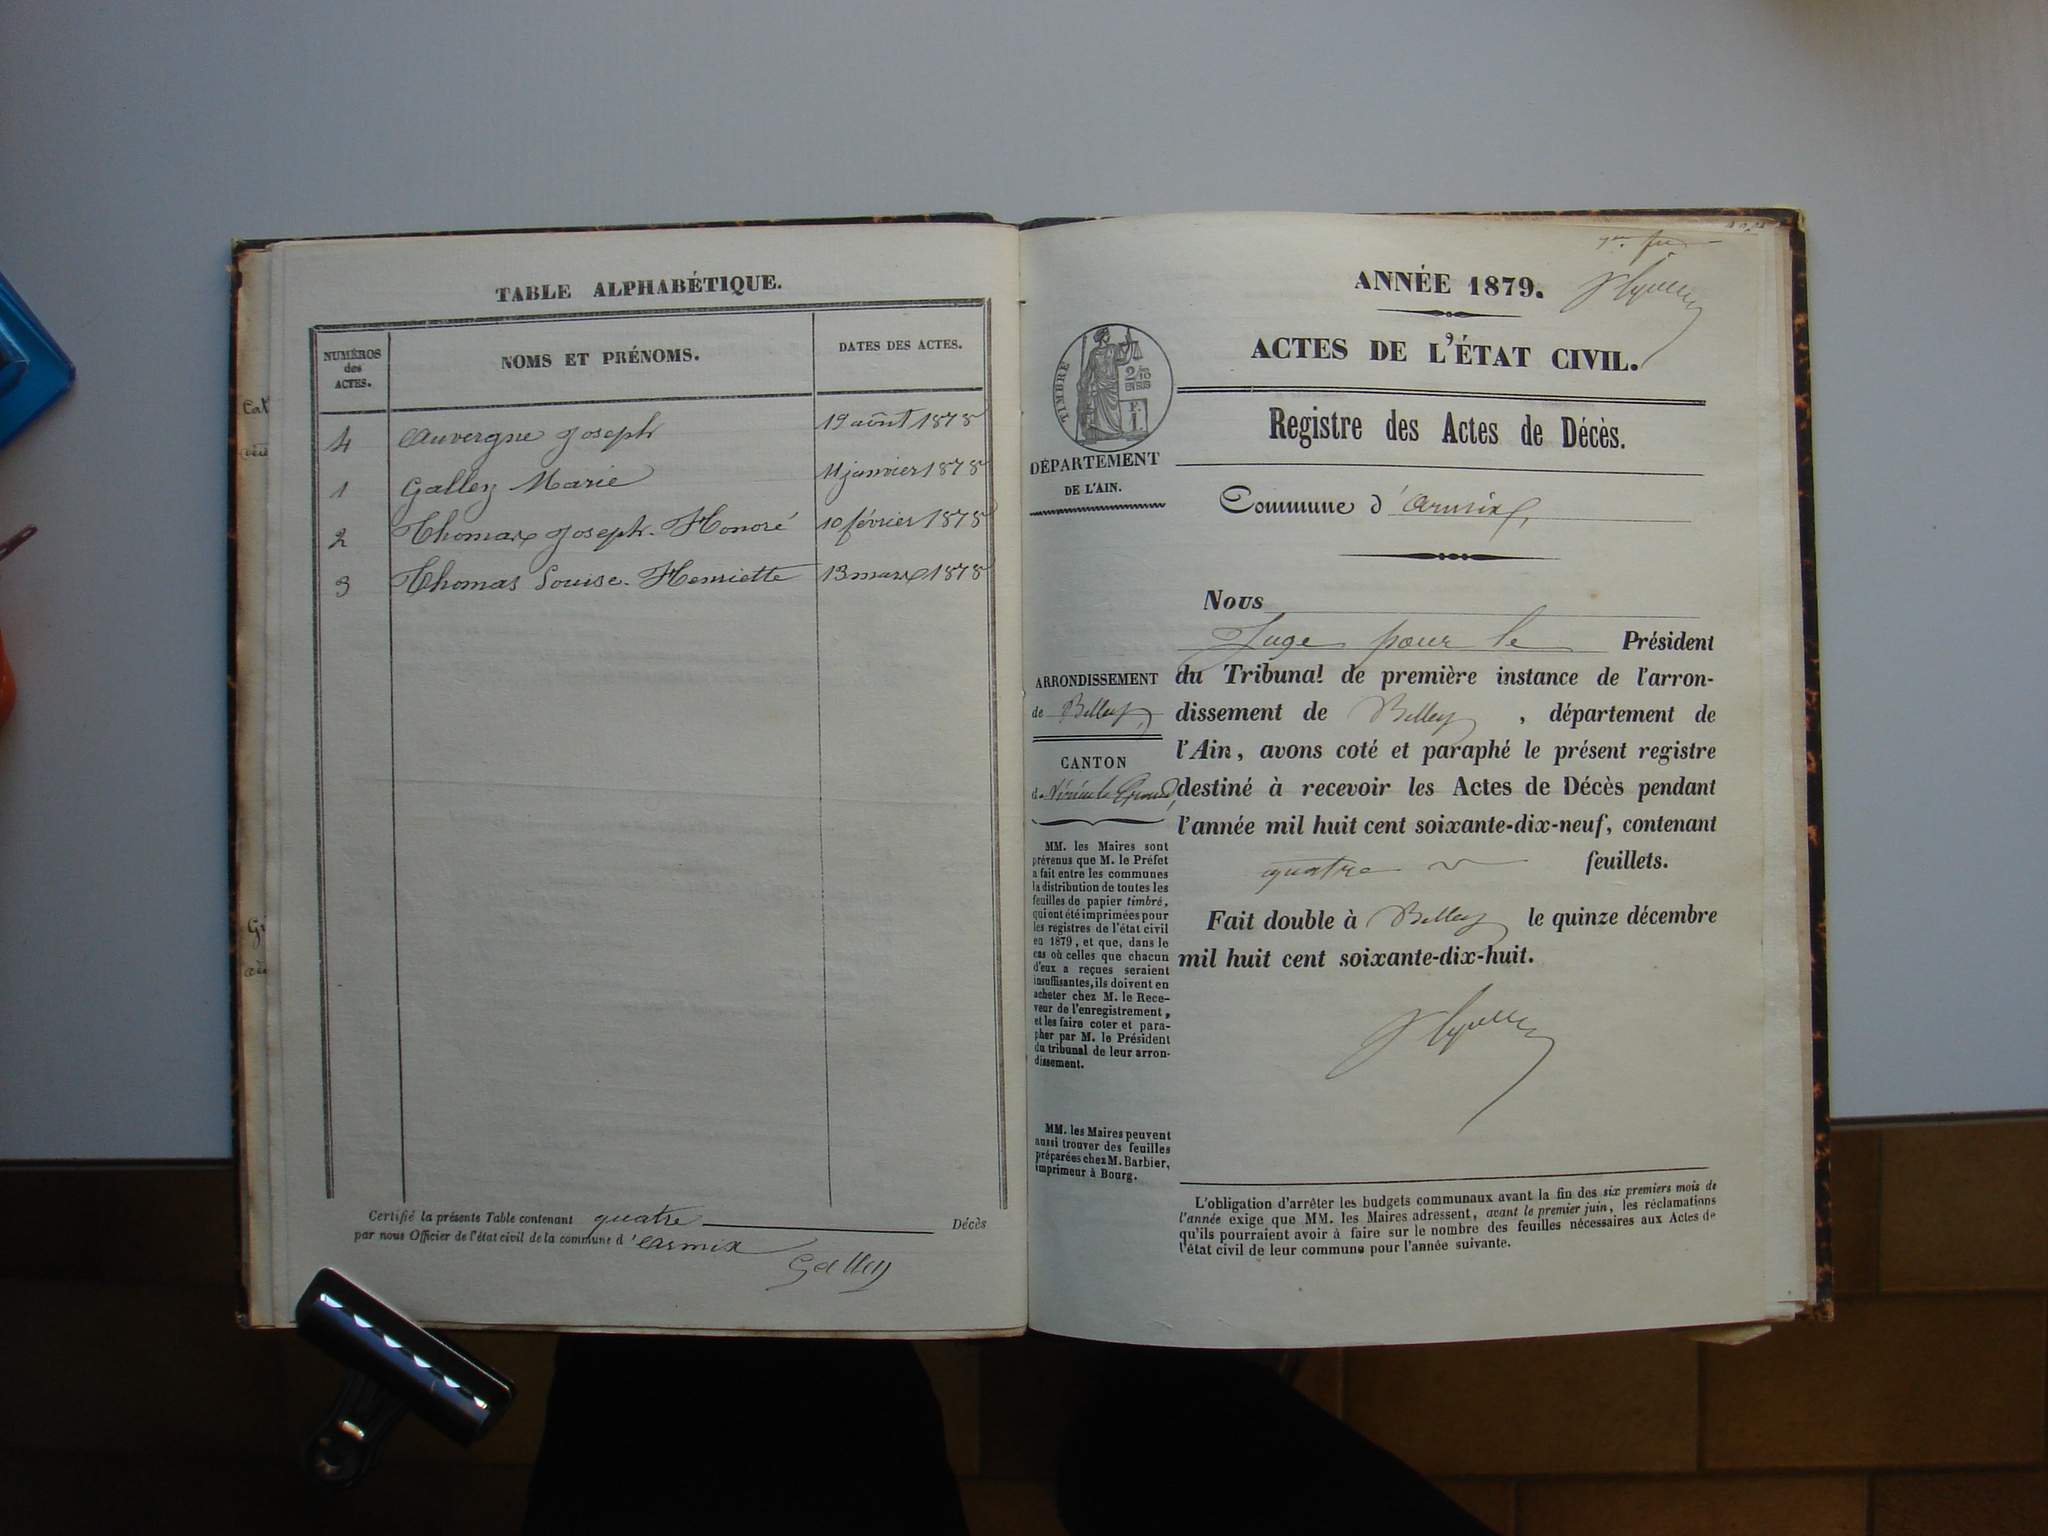 TABLE ALPHABÉTIQUE.
NUMÉROS des ACTES.
NOMS ET PRÉNOMS.
DATES DES ACTES.
4 Auvergne Joseph 19 août 1878
1 Galley Marie 11 janvier 1878
2 Thomas Joseph-Honoré 10 février 1878
3 Thomas Louise-Henriette 13 mars 1878
Certifié la présente Table contenant quatre Décès
par nous Officier de l'état civil de la commune d'Armix
Galley
ANNÉE 1879.
ACTES DE L'ÉTAT CIVIL.
TIMBRE
2/10
EN SUS
F.
1.
Registre des Actes de Décès.
DÉPARTEMENT
DE L'AIN.
Commune d'Armix
Nous
Juge pour le Président
du Tribunal de première instance de l'arron-
dissement de Belley, département de
l'Ain, avons coté et paraphé le présent registre
destiné à recevoir les Actes de Décès pendant
l'année mil huit cent soixante-dix-neuf, contenant
quatre feuillets.
Fait double à Belley le quinze décembre
mil huit cent soixante-dix-huit.
ARRONDISSEMENT
de Belley
CANTON
de Virieu le Grand
MM. les Maires sont
prévenus que M. le Préfet
a fait entre les communes
la distribution de toutes les
feuilles de papier timbré,
qui ont été imprimées pour
les registres de l'état civil
en 1879, et que, dans le
cas où celles que chacun
d'eux a reçues seraient
insuffisantes, ils doivent en
acheter chez M. le Rece-
veur de l'enregistrement,
et les faire coter et para-
pher par M. le Président
du tribunal de leur arron-
dissement.
MM. les Maires peuvent
aussi trouver des feuilles
préparées chez M. Barbier,
imprimeur à Bourg.
L'obligation d'arrêter les budgets communaux avant la fin des six premiers mois de
l'année exige que MM. les Maires adressent, avant le premier juin, les réclamations
qu'ils pourraient avoir à faire sur le nombre des feuilles nécessaires aux Actes de
l'état civil de leur commune pour l'année suivante.